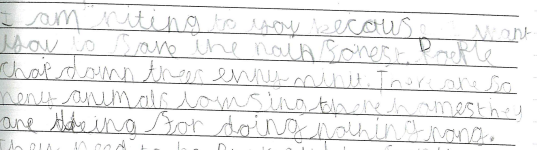 I am riting to you becous i want
you to save the rain forest. Peple
chop down trees enry minit. There are so
meny animals lowsing there homes they
are dieing for doing nothing rong.
They need to be